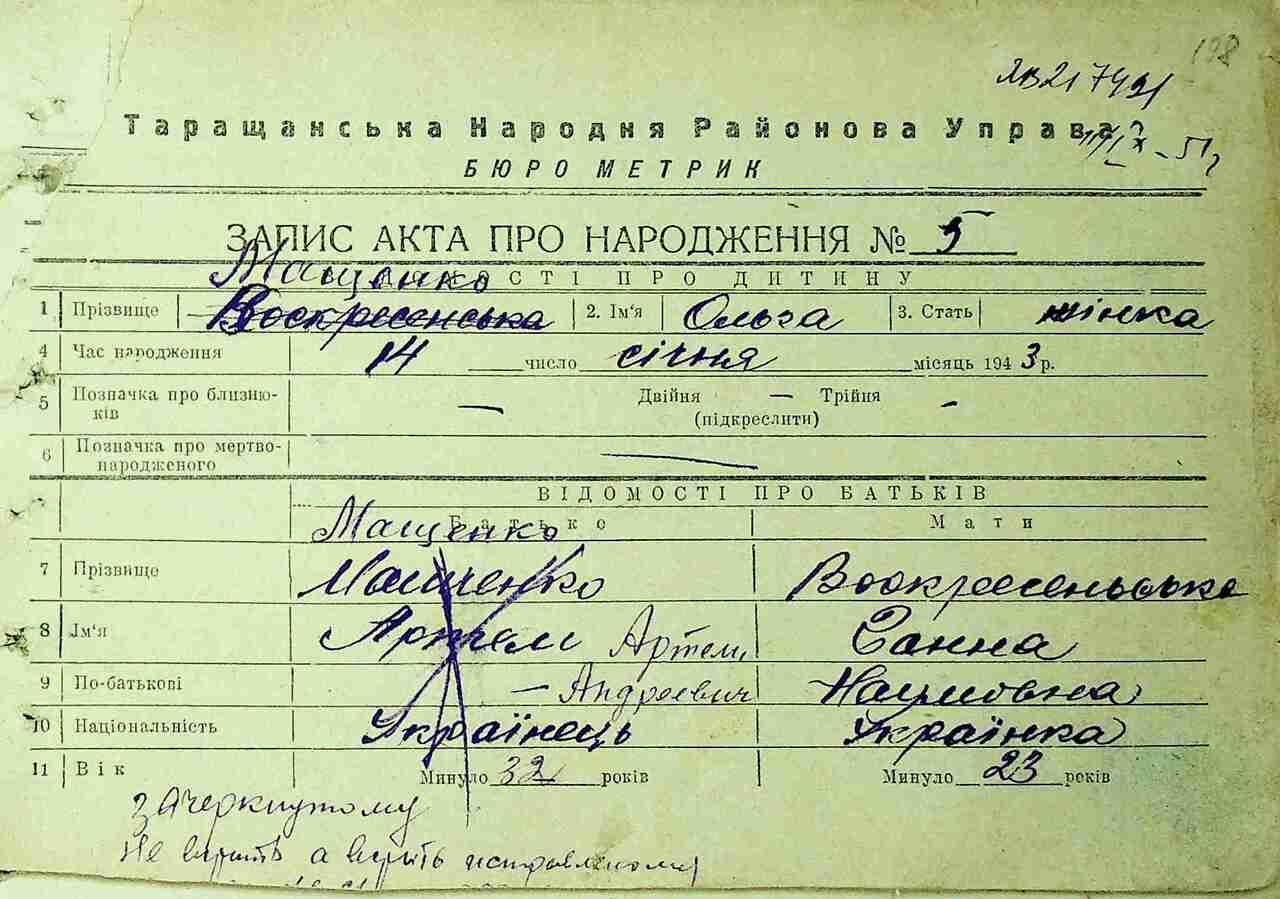 108
ЯВ217491
Таращанська Народня Районова Управа
17/X - 51 г
БЮРО МЕТРИК
ЗАПИС АКТА ПРО НАРОДЖЕННЯ № 5
Мащенко
ОСТІ ПРО ДИТИНУ
1 Прізвище Воскресенська 2. Ім'я Ольга 3. Стать жінка
4 Час народження 14 число січня місяць 1943 р.
5 Позначка про близню- — Двійня — Трійня -
ків (підкреслити)
6 Позначка про мертво- —
народженого
ВІДОМОСТІ ПРО БАТЬКІВ
Мащенко Батько Мати
7 Прізвище Мащенко Воскресенська
8 Ім'я Артем Артем Ганна
9 По-батькові — Андреевич Наумовна
10 Національність Українець Українка
11 Вік Минуло 32 років Минуло 23 років
зачеркнутому
не верить а верить исправленому